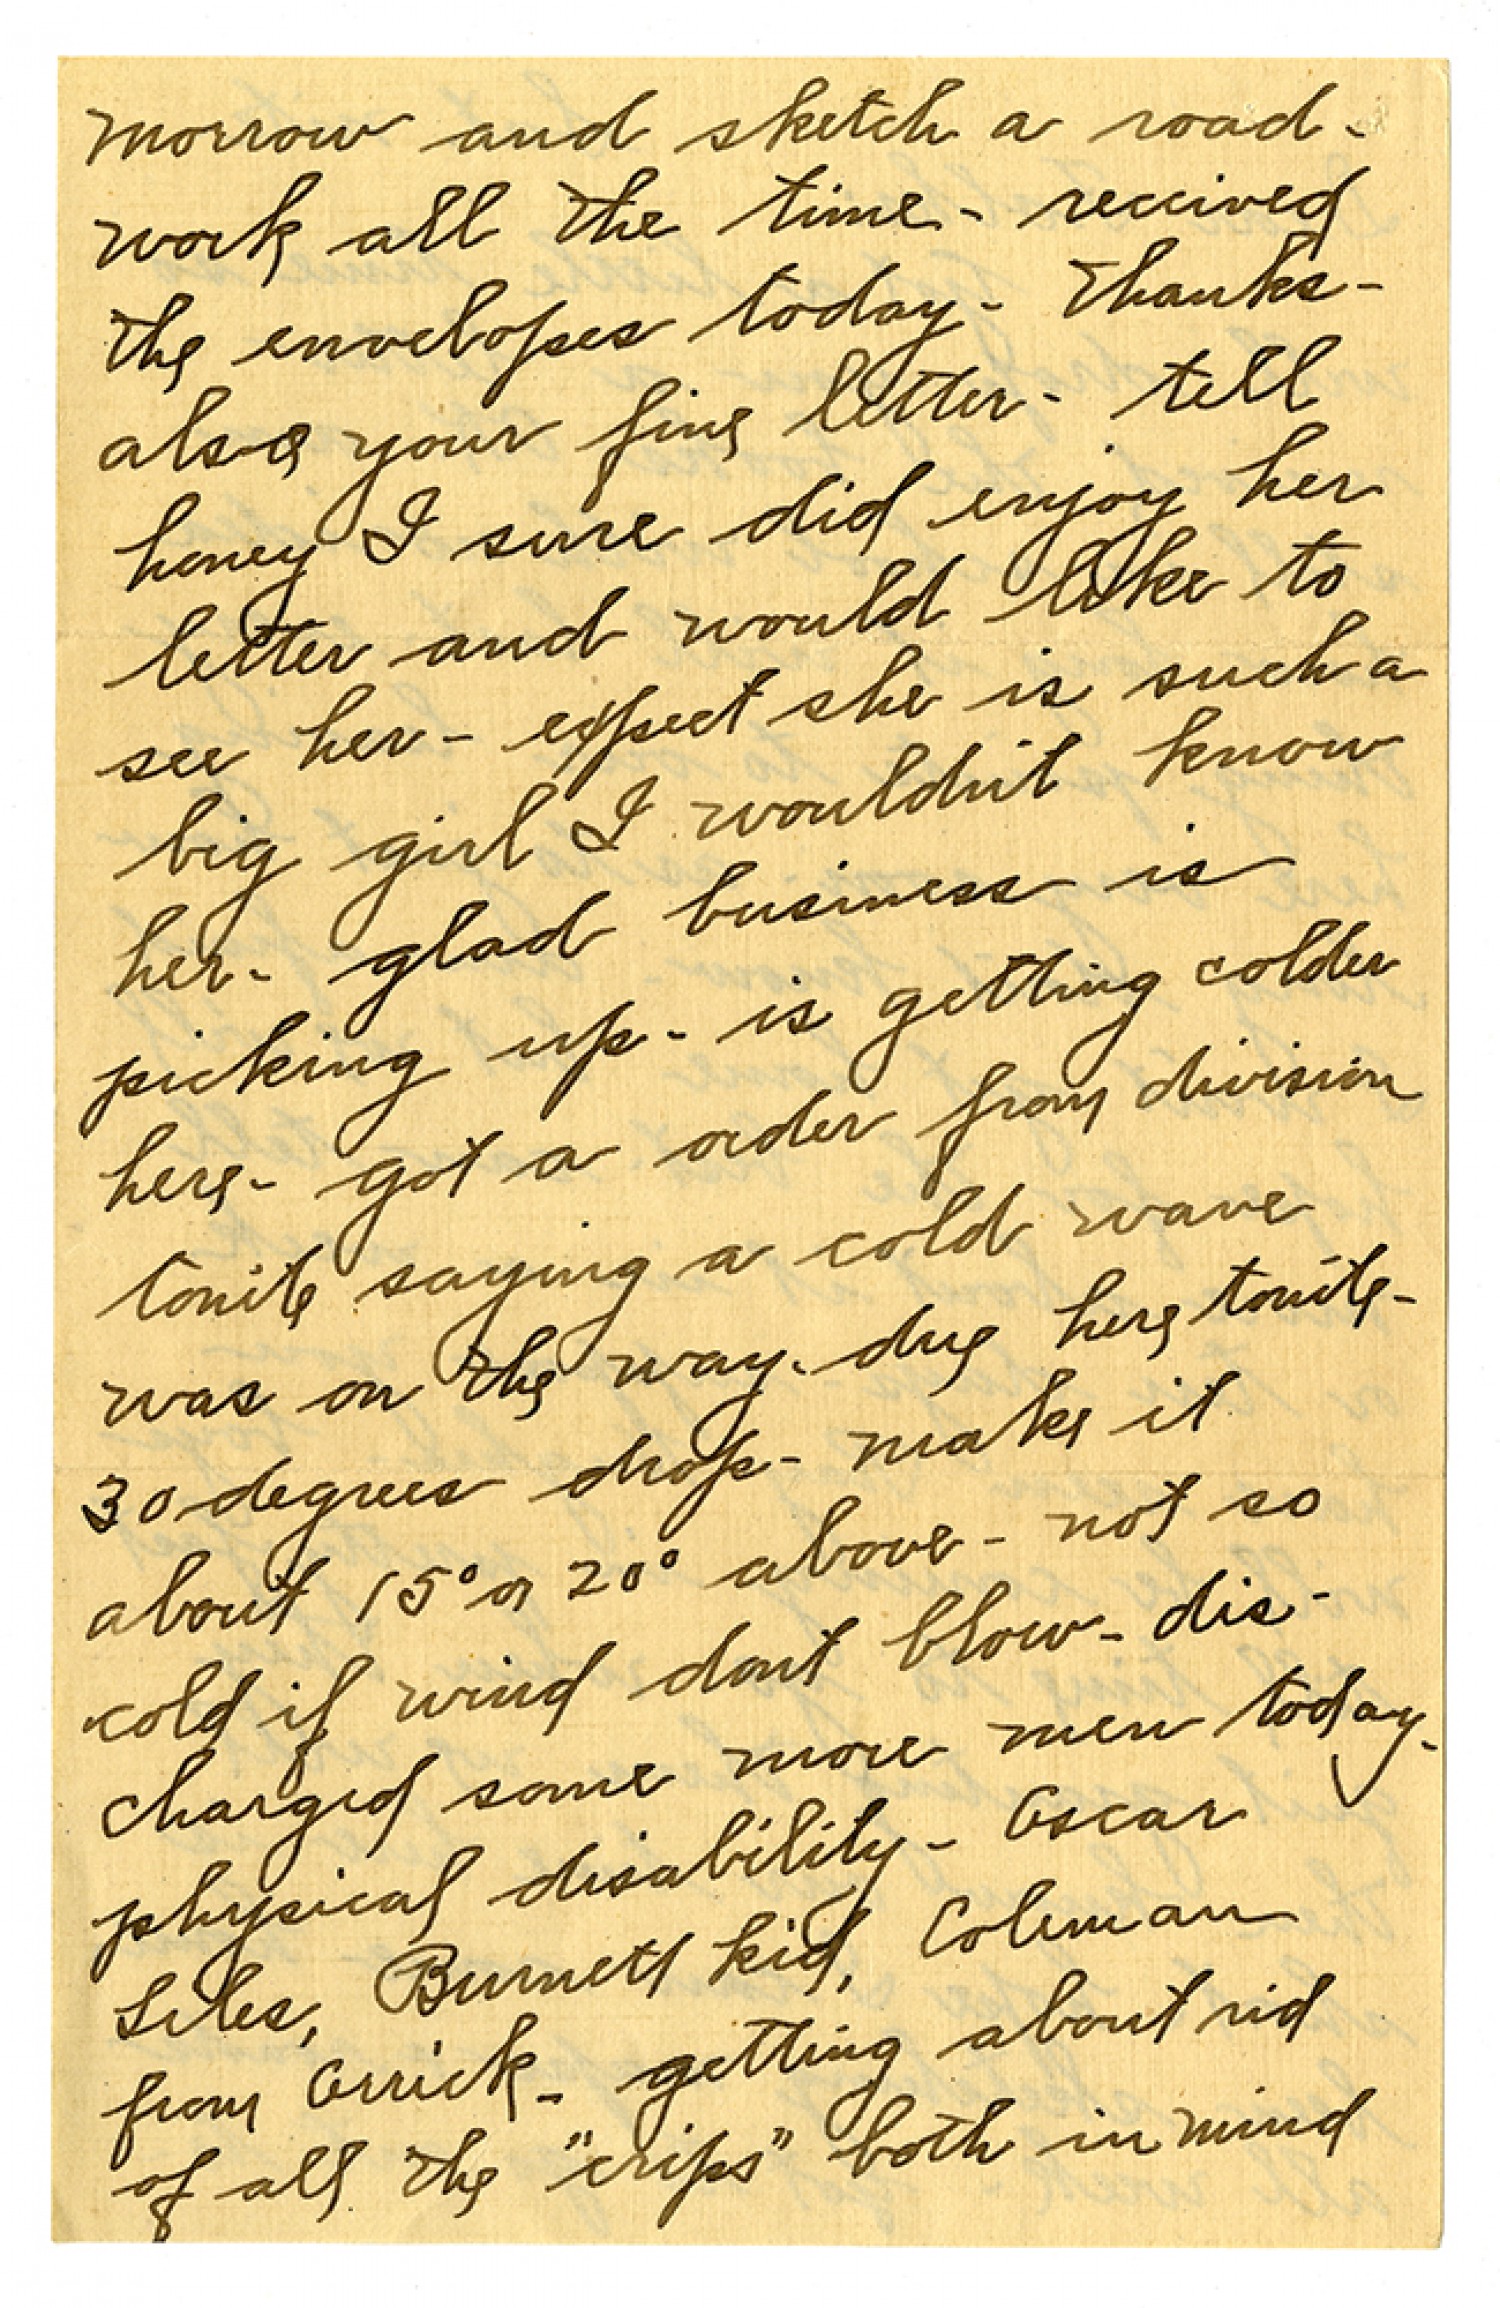 morrow and sketch a road -
work all the time - received
the envelopes today - thanks -
also your fine letter - tell
honey I sure did enjoy her
letter and would like to
see her - expect she is such a
big girl I wouldn't know
her - glad business is
picking up - is getting colder
here - got a order from division
tonite saying a cold wave
was on the way - due here tonite -
30 degrees drop - make it
about 15° or 20° above - not so
cold if wind dont blow - dis-
charged some more men today -
physical disability - Oscar
Liles, Burnett kid, Coleman
from Orrick - getting about rid
of all the "crips" both in mind